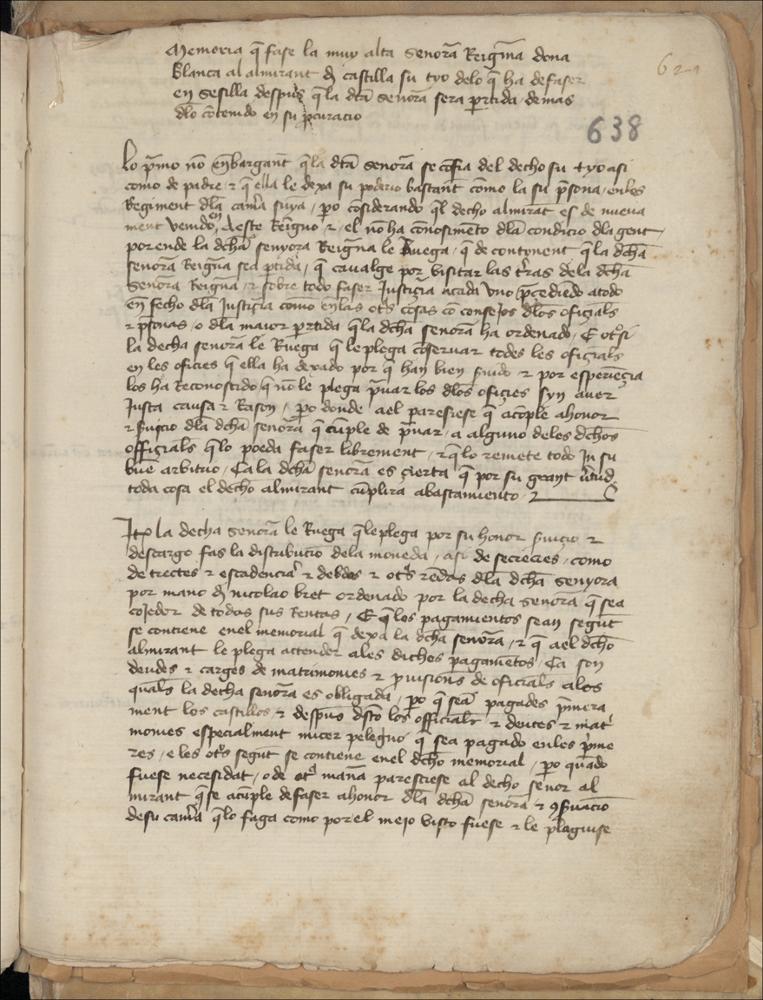 Memoria q̄ fase la muy alta senora Reigña dona
blanca al almirant d̄ castilla su tyo delo q̄ ha de faser
en sesilla despues q̄ la dt̄a senora sera p̄rtida demas
dl̄o cōtenido en su p̄curacio
621
638
Lo p̄mo nō enbargant q̄ la dt̄a senora se cōfia del decho su tyo asi
como de padre ⁊ q̄ ella le dexa su poderio bastant como la su p̄sona / en les
Regiment dl̄a cam̄a suya / p̄o cōsiderando q̄l decho almirāt es de nueua
ment venido en aeste Reigno ⁊ el nō ha conosimēto dl̄a condicio dl̄a gent
por ende la dcha senyora Reigña le Ruega / q̄ de contynent q̄ la dcha
senora Reigña sea p̄tida / q̄ caualge por visitar las t̄ras dela dcha
senora Reigña / ⁊ sobre todo faser Justiçia acada vno p̄cediēdo a todo
en fecho dl̄a Justiçia como en las ot̄s cosas cō consejos dl̄os ofiçials
⁊ p̄sonas / o dl̄a maior p̄rtida q̄ la dcha senora ha ordenado / E ot̄si
la decha senora le Ruega q̄ le plega cōseruar todes les ofiçials
en les ofiçies q̄ ella ha dexado por q̄ han bien s̄uido ⁊ por esperiēçia
los ha Reconostido / q̄ nō le plega p̄uar los dl̄os ofiçies syn auer
Justa causa ⁊ Rason / p̄o donde ael paresiese q̄ acōple ahonor
⁊ s̄uiçio dl̄a dcha senora q̄ cūple de p̄uar / a alguno deles dc̄hos
offiçials q̄ lo poeda faser librement / ⁊ q̄ lo remete todo In su
buē arbitrio / Ca la dcha senora es çierta q̄ por su grant v̄tud
toda cosa el decho almirant cūplira abastamiento
It̄ La decha senora le Ruega q̄ le plega por su honor s̄uiçio ⁊
descargo fas la distribuciō dela moneda / asi de secrecies / como
de trectes ⁊ escadencia ⁊ debdes ⁊ ot̄s rēdas dl̄a dcha senyora
por mano d̄ nicolao bret ordenado por la decha senora q̄ sea
cojedor de todas sus Rentas / E q̄ los pagamientos sean segūt
se contiene enel memorial q̄ dexa la dcha senora / ⁊ q̄ ael dcho
almirant le plega attender ales diches pagamētos / Ca son
deudes ⁊ carges de matrimonies ⁊ p̄uisions de ofiçials alos
quals la decha senora es obligada / p̄o q̄ seā pagades p̄mera
ment los castillos ⁊ despues dsto los offiçials ⁊ deutes ⁊ mat̄
monies espeçialment miçer pelegno q̄ sea pagado en les p̄me
res / e les ot̄s segūt se contiene enel dcho memorial / p̄o quādo
fuese necesidat / o de ot̄a manā paresciese al decho señor al
mirant q̄ se acūple de faser ahonor dl̄a dcha senora ⁊ 9s̄uacio
desu cam̄a q̄ lo faga como por el mejo visto fuese ⁊ le plaguise